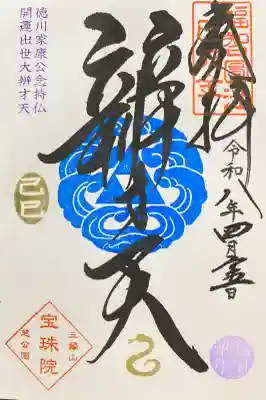 奉拝
令和八年四月十五日
辨才天
徳川家康公念持仏
開運出世大辨才天
己巳
三縁山
宝珠院
芝公園